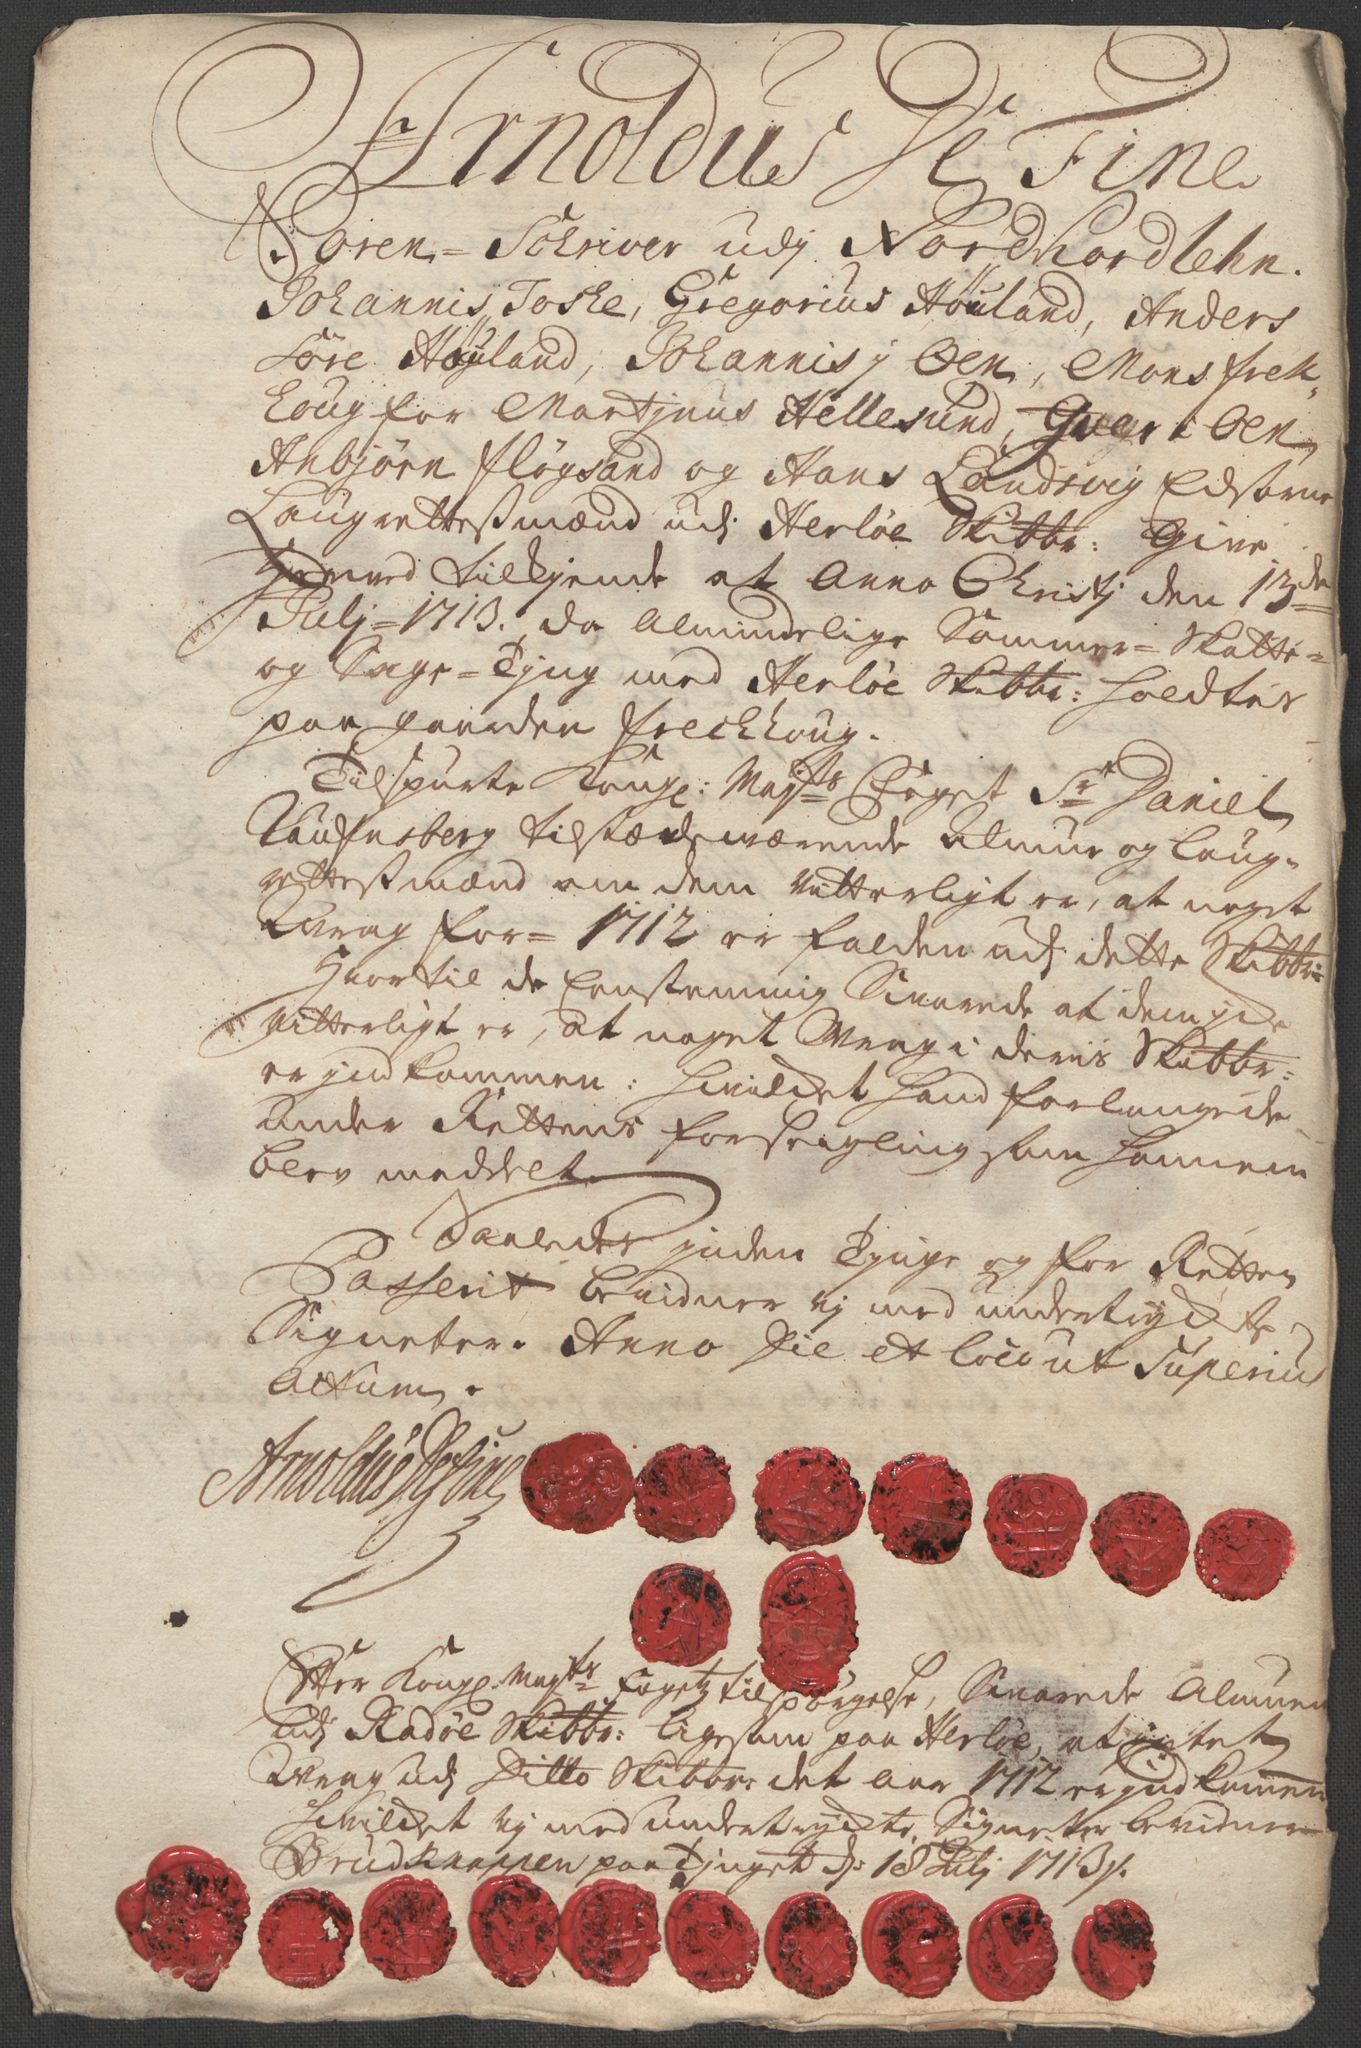 Arnoldus de Fine
Soren-Schriver udj Nordhordlehn.
Johannis Toske, Gregorius Høuland, Anders
Søre Høyland, Johannis j Øen, Mons frek-
houg for Martjnus Hellesund, Gregr i Øen,
Anbjørn fløgsand og Hans Landsvig Edsorne
Laugrettesmænd udj Herløe Skibbr: Giøre
hermed tilkjende at Anno Christj den 13de
Julj 1713. da Almindelige Sommer- Skatte-
og Sage-Tjng med Herløe Skibbr: holdtes
paa gaarden freckhoug.
Tilspurte Kongl: Mayts Foget Sr Daniel
tilstædeværende Almue og Laug-
rettesmænd om dem vitterligt er, at noget
Vrag for 1712 er falden udj dette Skibbr:
Hvortil de Eenstemmig Svarede at dem icke
vitterligt er, at noget Vrag i deris Skibbr:
er jndkommen: hvilcket hand forlangede
under Rettens forseigling som hannem
blev meddelt.
Saaledes jnden Tjnge og for Retten
Passerit bevidner vj med undertrygte
Signeter. Anno Die et loco ut Superius
Actum.
Arnoldus de Fine
Efter Kongl: Mayts fogetz tilspørgelse, Svarede Almuen
udj Radøe Skibbr: ligesom paa Herløe, at jntet
Vrag udj Ditto Skibbr: det aar 1712 er jndkommen
hvilcket vj med undertrygte Signeter bevidner
Brudknappen paa Tjnget d: 18 Julj 1713.